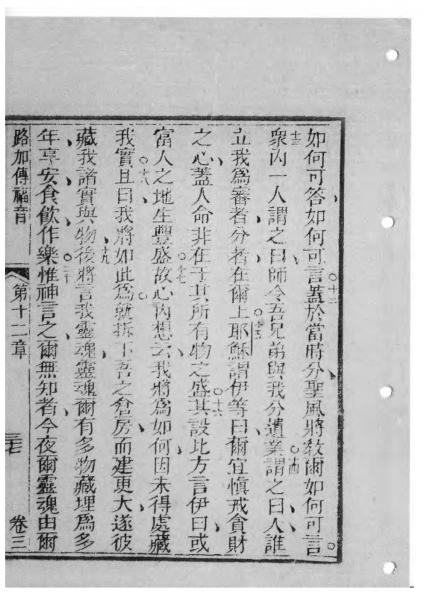 如何可答如何可言。十二蓋於當時分聖風將教爾如何可言。
十三衆內一人謂之曰師令吾兄弟與我分遺業。十四謂之曰人誰
立我爲審者分者在爾上耶。十五穌謂伊等曰爾宜慎戒貪財
之心蓋人命非在于其所有物之盛。十六其設比方言伊曰或
富人之地生豐盛。十七故心內想云我將爲如何因未得處藏
我實。十八且曰我將如此爲就拆下吾之倉房而建更大遂彼
藏我諸實與物。十九後將言我靈魂靈魂爾有多物藏埋爲多
年享安食飲作樂。二十惟神言之爾無知者今夜爾靈魂由爾
路加傳福音 第十二章 三七 卷三